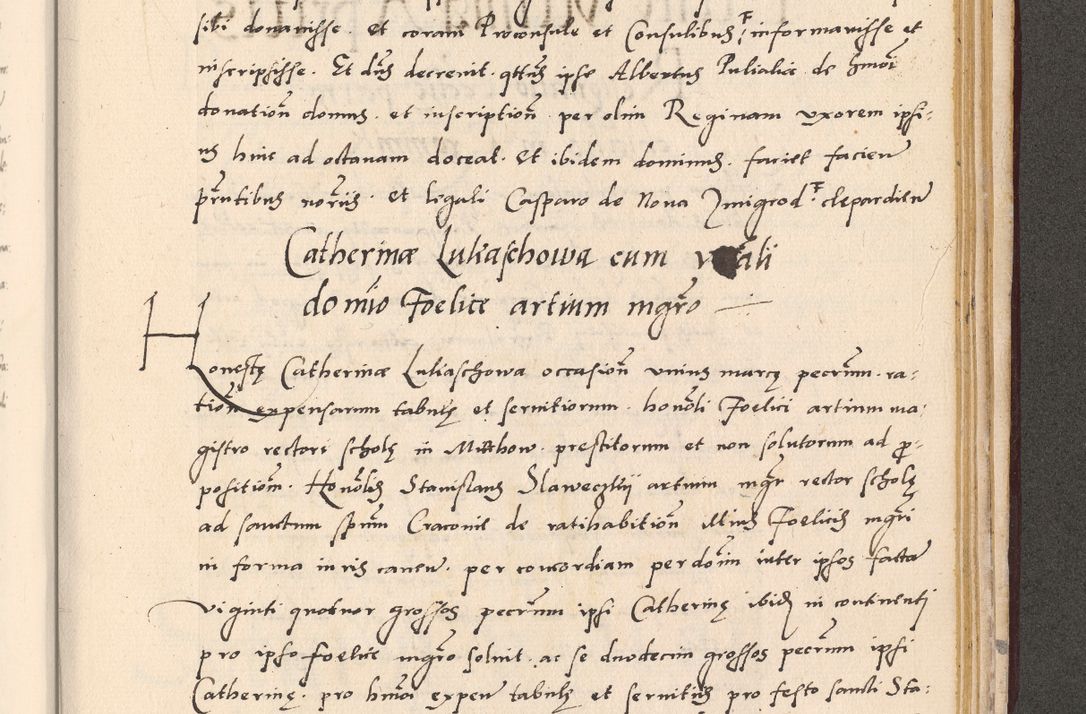 sibi donavisse. et coram Proconsule et Consulibus informavisse et
inscripsisse. Et dns decrevit. qtus ipse Albertus Pulialicz de hmoi
donation domus. et inscription. per olim Reginam uxorem ipsi:
us hinc ad octavam doceat. Et ibidem dominus. faciet facien
prntibus noriis. et legali Casparo de Nova
Catherinæ Luliaschowa cum
domio Foelice artium mgro
Honestę Catherinæ Luliaschowa occasion unius marcę pecrum. ra:
tion expensarum tabulę et servitiorum. honoli Foelici artium ma:
gistro rectori scholę in Miechow. prestitorum et non solutorum ad p:
position. Honolis Stanislaus artium mgr rector scholę
ad sanctum spum Cracovie de ratihabition illius Foelicis mgri
in forma iuris caven. per concordiam per doim inter ipsos facta
viginti quatuor grossos pecrum ipsi Catherinę ibid in continenti
pro ipso foelice mgro solvit. ac se duodecim grossos pecrum ipsi
Catherinę. pro hmoi expen tabulę et servitiis pro festo sancti Sta: